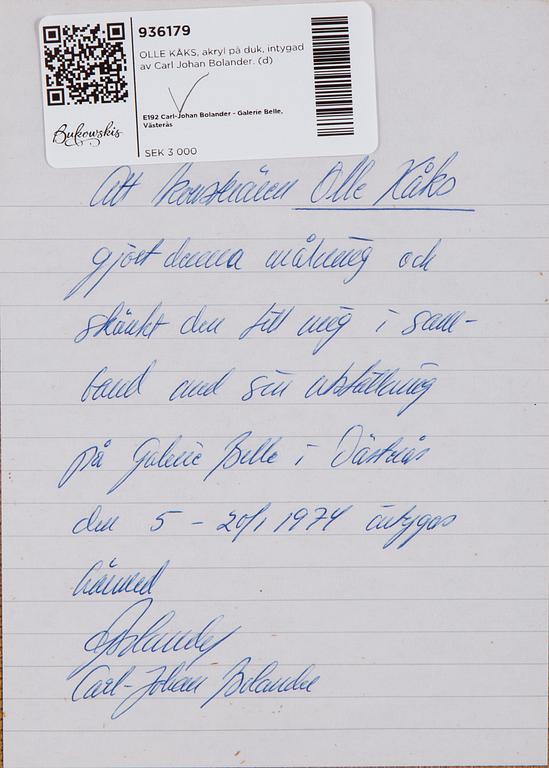 936179
OLLE KÅKS, akryl på duk, intygad
av Carl Johan Bolander. (d)
E192 Carl-Johan Bolander - Galerie Belle,
Västerås
Bukowskis
SEK 3 000
Att konstnären Olle Kåks
gjort denna målning och
skänkt den till mig i sam-
band med sin utställning
på Galerie Belle i Västerås
den 5 - 20/1 1974 intygas
härmed
Carl-Johan Bolander